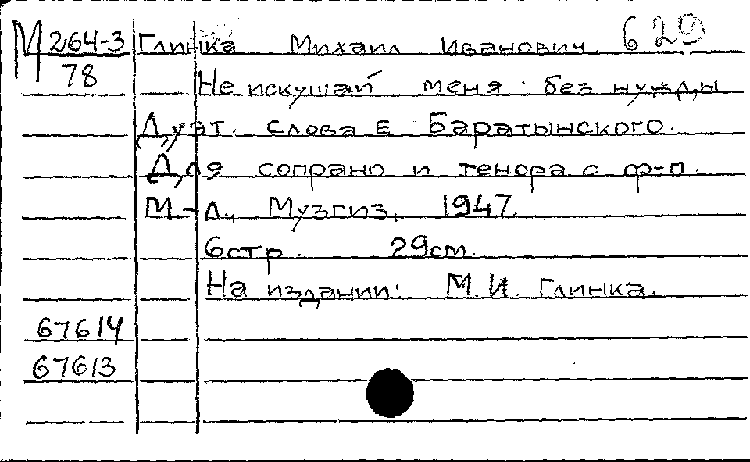 М 264-3 Глинка Михаил Иванович 629
78 Не искушай меня без нужды
Дуэт. Слова Е. Баратынского.
Для сопрано и тенора с ф-п.
М-Л., Музгиз, 1947.
6стр. 29см.
На издании: М.И. Глинка.
67614
67613